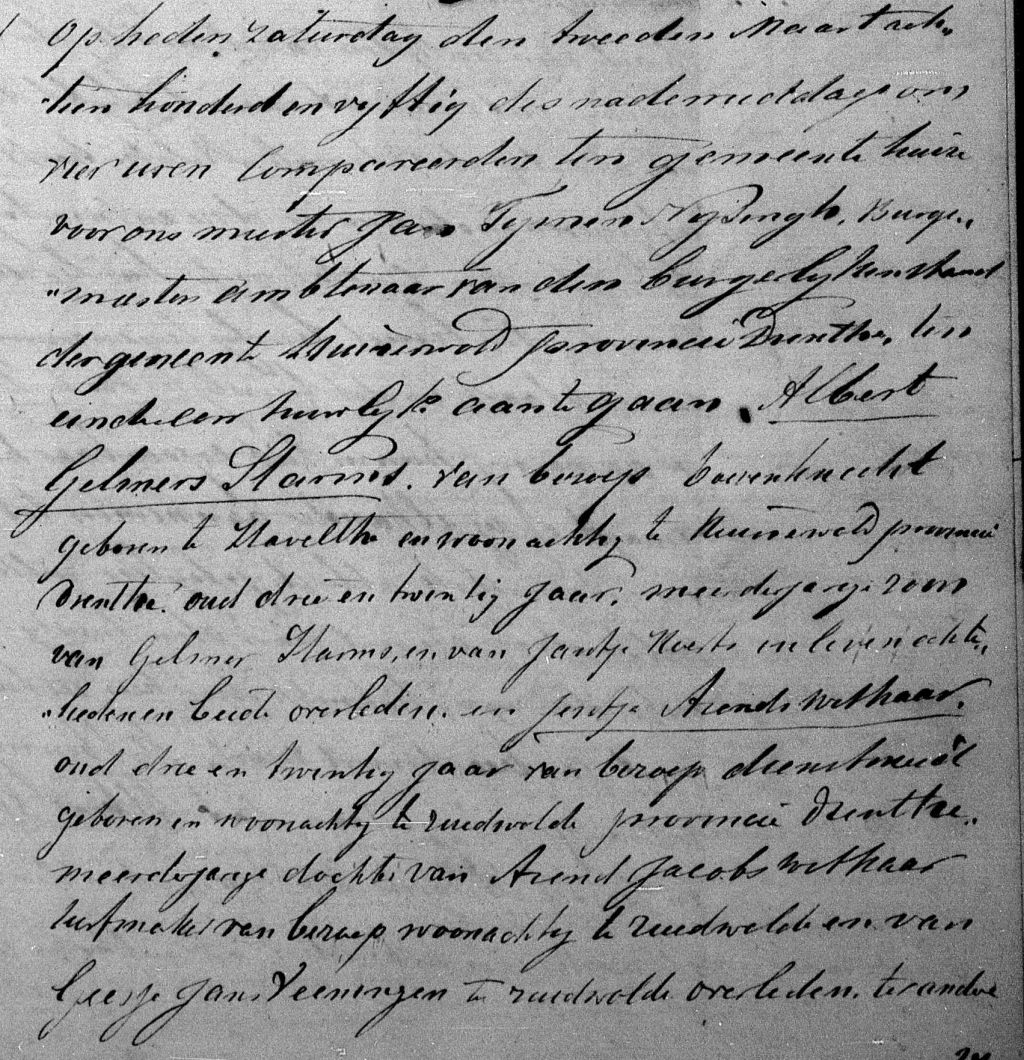 Op heden Zaturdag den tweeden Maart ach„
„tien honderd en vyftig des nademiddags om
vier uren Compareerden ten gemeente huize
voor ons meester Jan Tymen Nysingh, Burge„
„meester ambtenaar van den burgerlyken stand
der gemeente Ruinerwold provincie Drenthe, ten
einde een huwlyk aan te gaan. Albert
Gelmers Harms. van beroep boerenknecht
geboren te Havelthe en woonachtig te Ruinerwold provincie
Drenthe. oud drie en twintig jaar. meerderjarige zoon
van Gelmer Harms, en van Jantje Roerts in leven echte„
„lieden en beide overleden. en Jentje Arends Wethaar.
oud drie en twintig jaar van beroep dienstmeid
geboren en woonachtig te zuidwolde provincie Drenthe„
meerderjarige dochter van Arend Jacobs Wethaar
turfmaker van beroep woonachtig te zuidwolde en van
Geesje Jans Veeningen te zuidwolde overleden. ter andre